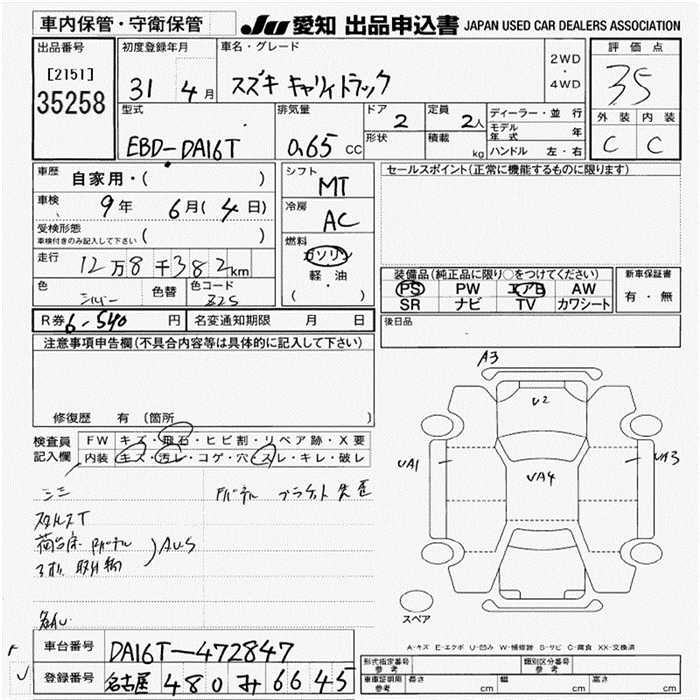 車内保管・守衛保管
JU 愛知 出品申込書 JAPAN USED CAR DEALERS ASSOCIATION
出品番号
[2151]
35258
初度登録年月
31 4月
車名・グレード
スズキ キャリイトラック
2WD
・
4WD
評価点
35
外装 内装
C C
型式
EBD-DA16T
排気量
0.65 CC
ドア
2
定員
2人
形状
積載
kg
ディーラー・並 行
モデル年式 年
ハンドル 左・右
車歴
自家用・( )
車検
9年 6月(4日)
受検形態
車検付きのみ記入して下さい ( )
走行
12万8千382km
色
シルバー
色替
色コード
Z2S
R券 6-540 円
名変通知期限 月 日
シフト
MT
冷房
AC
燃料
ガソリン
軽・油
( )
セールスポイント(正常に機能するものに限ります)
装備品(純正品に限り○をつけてください)
PS PW エアB AW
SR ナビ TV カワシート
新車保証書
有・無
後日品
注意事項申告欄(不具合内容等は具体的に記入して下さい)
修復歴 有 (箇所 )
検査員記入欄
FW キズ・飛石・ヒビ割・リペア跡・X要
内装 キズ・汚レ・コゲ・穴・スレ・キレ・破レ
荷台床
AUS
A3
U2
UA1
UA4
UA3
スペア
A-キズ E-エクボ U-凹み W-補修跡 S-サビ C-腐食 XX-交換済
車台番号
DA16T-472847
登録番号
名古屋 480 み 6645
形式指定番号 参考
類別区分番号 参考
車庫証明用 参考
長さ cm
幅 cm
高さ cm